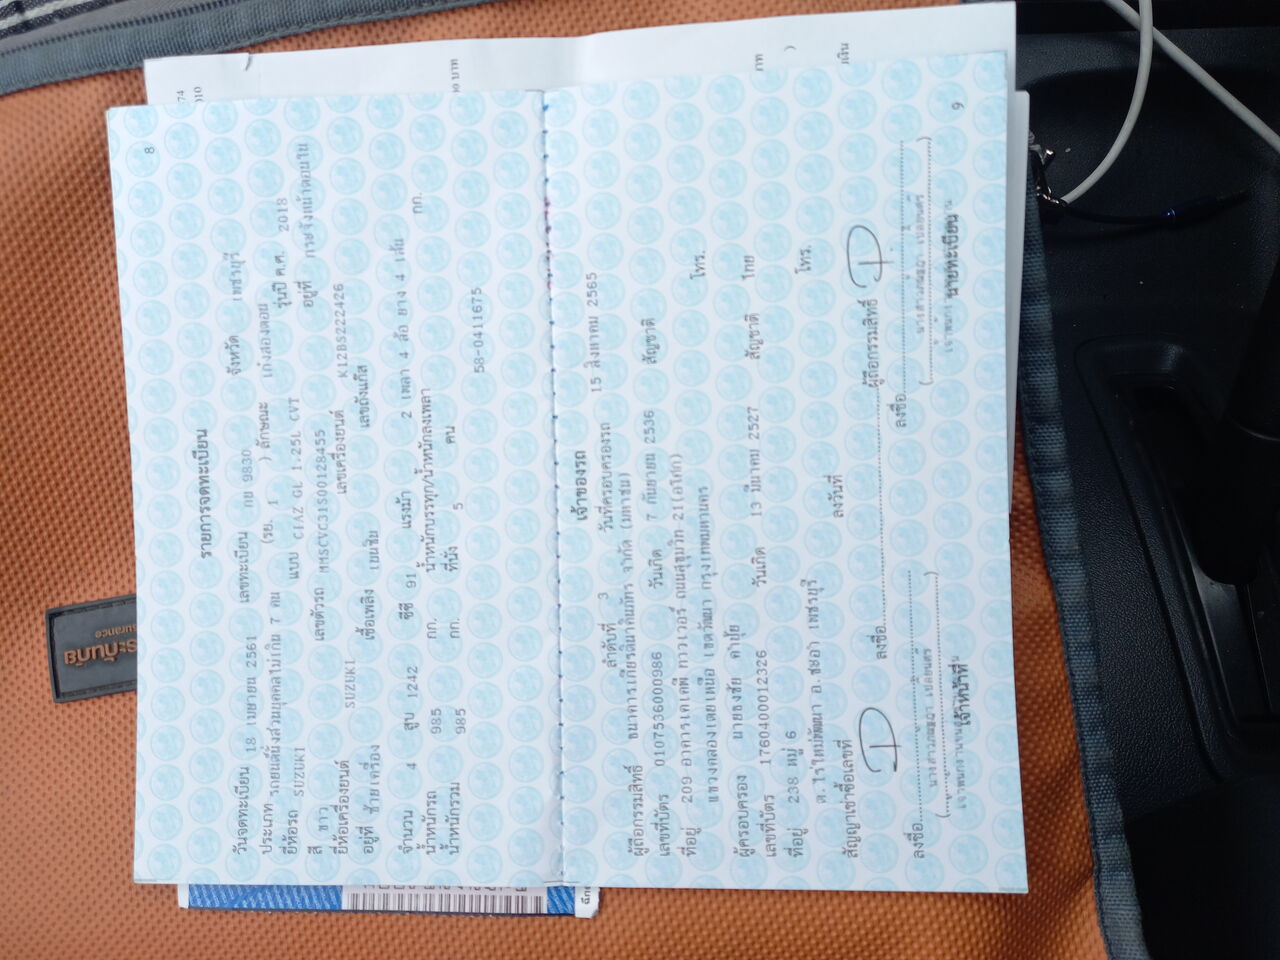 8
รายการจดทะเบียน
วันจดทะเบียน 18 เมษายน 2561 เลขทะเบียน กย 9830 จังหวัด เพชรบุรี
ประเภท รถยนต์นั่งส่วนบุคคลไม่เกิน 7 คน (รย. 1 ) ลักษณะ เก๋งสองตอน
ยี่ห้อรถ SUZUKI แบบ CIAZ GL 1.25L CVT รุ่นปี ค.ศ. 2018
สี ขาว เลขตัวรถ MMSCVC31S00128455 อยู่ที่
ยี่ห้อเครื่องยนต์ SUZUKI เลขเครื่องยนต์ K12BS222426
อยู่ที่ ซ้ายเครื่อง เชื้อเพลิง เบนซิน เลขถังแก๊ส
จำนวน 4 สูบ 1242 ซีซี 91 แรงม้า 2 เพลา 4 ล้อ ยาง 4 เส้น
น้ำหนักรถ 985 กก. น้ำหนักบรรทุก/น้ำหนักลงเพลา กก.
น้ำหนักรวม 985 กก. ที่นั่ง 5 คน
58-0411675
เจ้าของรถ
ลำดับที่ 3 วันที่ครอบครองรถ 15 สิงหาคม 2565
ผู้ถือกรรมสิทธิ์ ธนาคารเกียรตินาคินภัทร จำกัด (มหาชน)
เลขที่บัตร 0107536000986 วันเกิด 7 กันยายน 2536 สัญชาติ
ที่อยู่ 209 อาคารเคเคพี ทาวเวอร์ ถนนสุขุมวิท 21(อโศก)
แขวงคลองเตยเหนือ เขตวัฒนา กรุงเทพมหานคร โทร.
ผู้ครอบครอง นายธงชัย คำปุ้ย
เลขที่บัตร 1760400012326 วันเกิด 13 มีนาคม 2527 สัญชาติ ไทย
ที่อยู่ 238 หมู่ 6
ต.ไร่ใหม่พัฒนา อ.ชะอำ เพชรบุรี โทร.
สัญญาเช่าซื้อเลขที่ ลงวันที่
ลงชื่อ ผู้ถือกรรมสิทธิ์
ลงชื่อ ลงชื่อ
เจ้าหน้าที่ นายทะเบียน
9